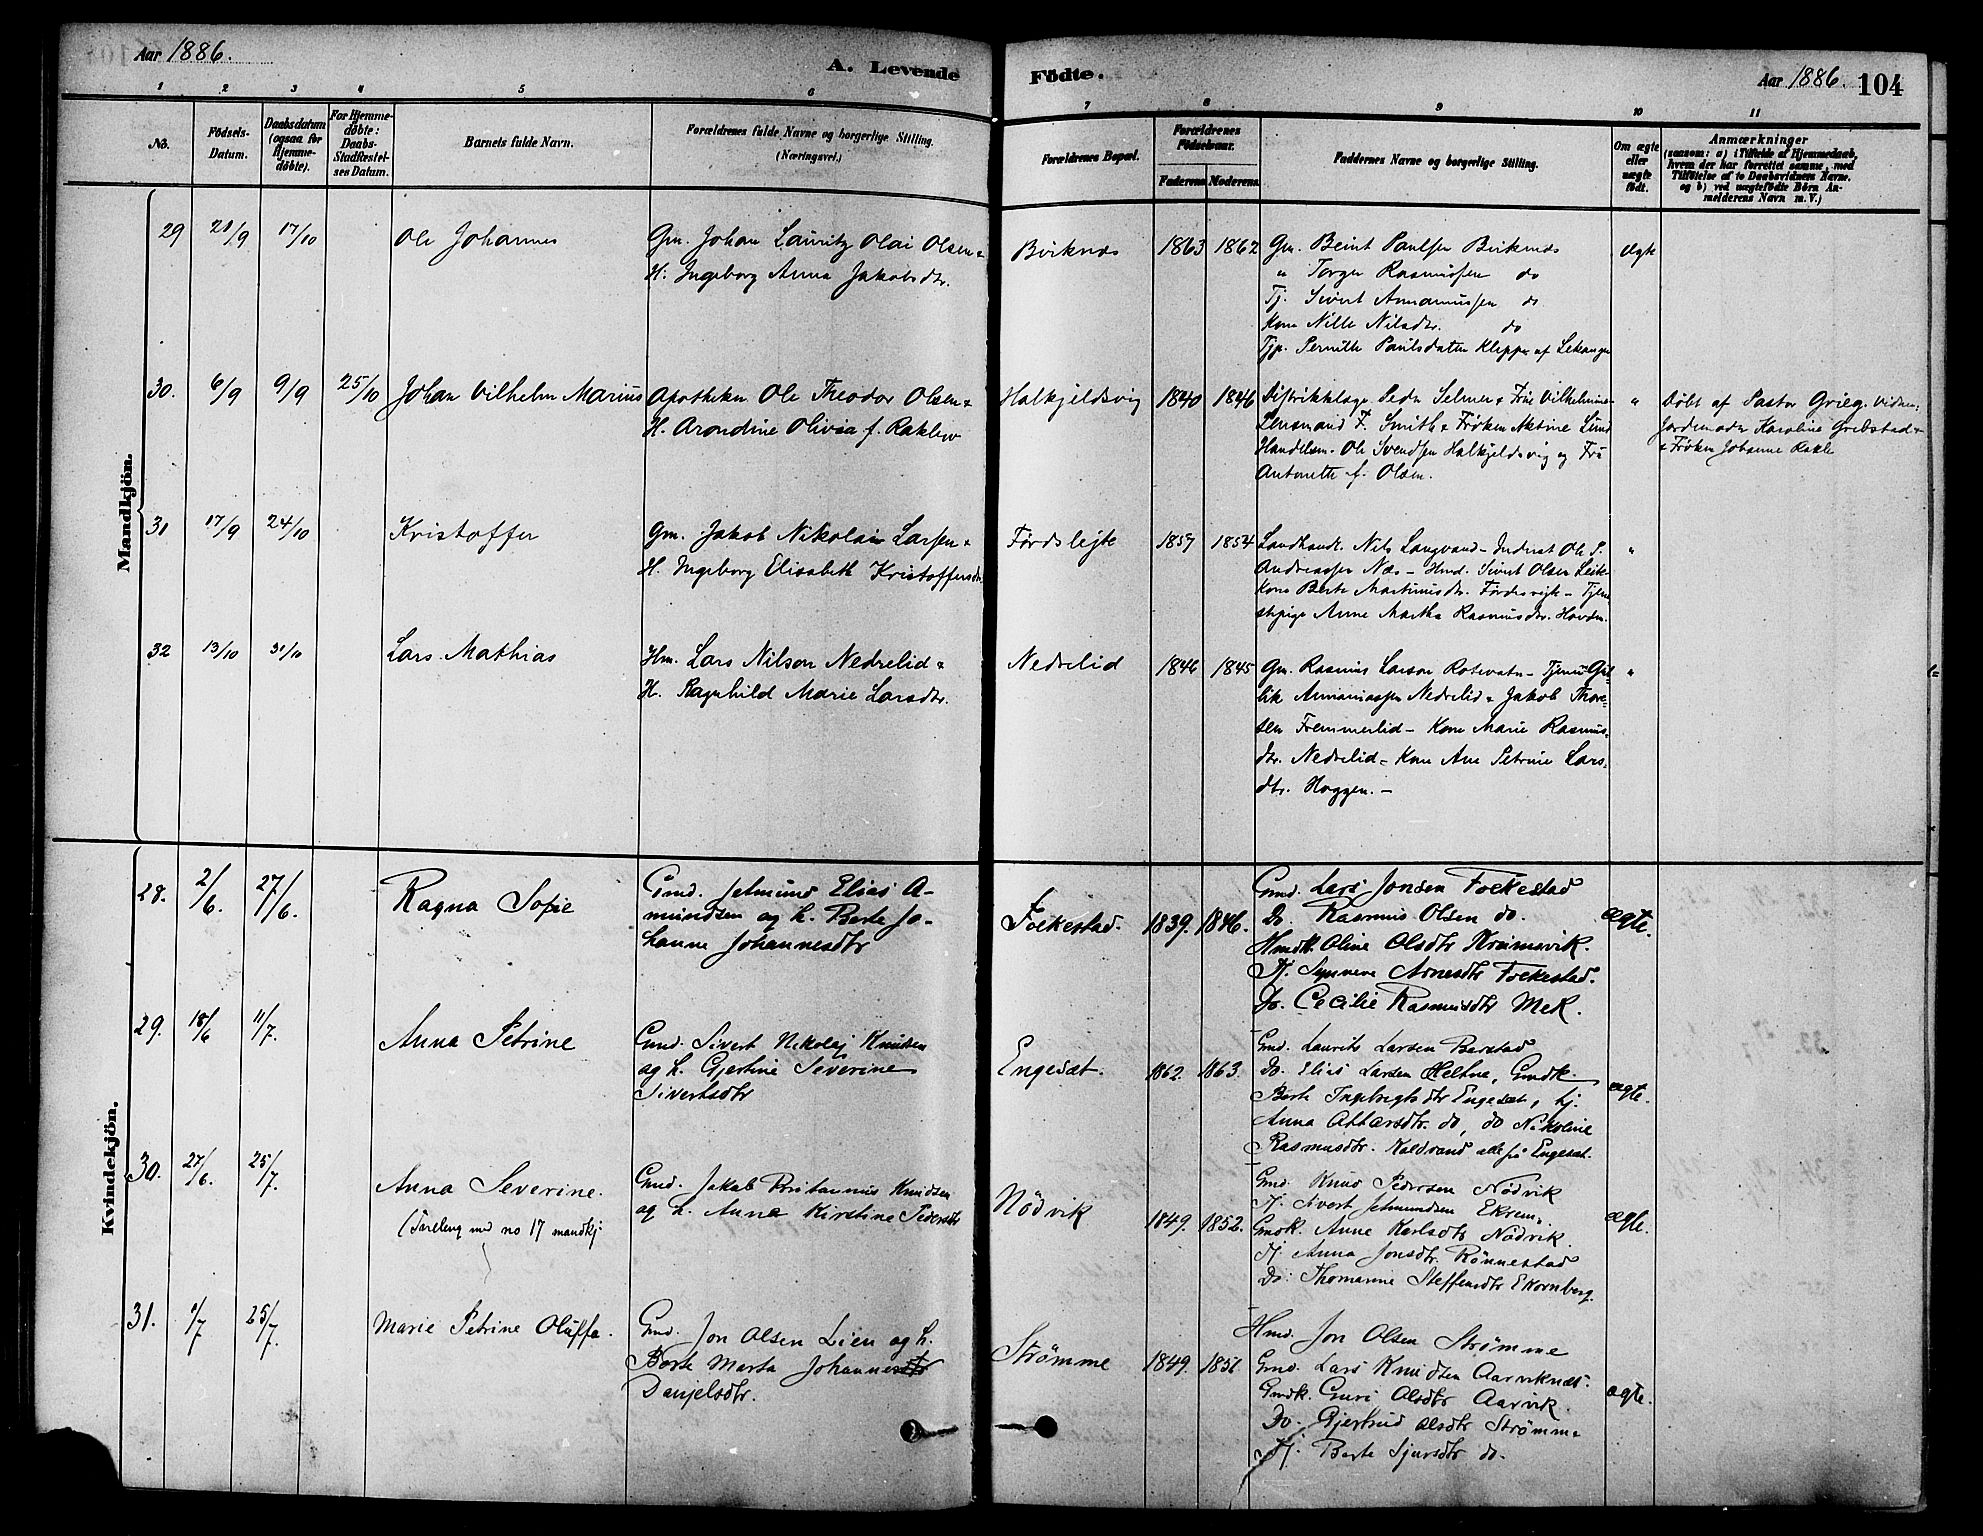 Aar 1886.
A. Levende
Födte.
Aar 1886. 104
1 2 3 4 5 6 7 8 9 10 11
No.
Födsels-
Datum.
Daabsdatum
(ogsaa for
Hjemme-
döbte).
For Hjemme-
döbte:
Daabs-
Stadfæstel-
ses Datum.
Barnets fulde Navn.
Forældrenes fulde Navne og borgerlige Stilling.
(Næringsvei.)
Forældrenes Bopæl.
Forældrenes
Födselsaar.
Faderens Moderens
Faddernes Navne og borgerlige Stilling.
Om ægte
eller
uægte
födt.
Anmærkninger
(saasom: a) i Tilfælde af Hjemmedaab,
hvem der har forrettet samme, med
Tilföielse af to Daabsvidners Navne,
og b) ved uægtefödte Börn An-
melderens Navn m. V.)
Mandkjön.
29 17/10 Ole Johannes
Gm. Johan Lauritz Olai Olsen &
H. Ingeborg Anna Jakobsdtr.
1863 1862
Gm. Beint Paulsen
" Torger Rasmussen do
Tj. Sivert do
Kone Nille Nilsdtr. do
Tjp. Pernille Paulsdatter Klepper af Lekanger
Ægte
30. 6/9 9/9 25/10 Johan Vilhelm Marius
Apotheker Ole Theodor Olsen &
H. Arondine Olivia f.
Halkjeldsvig 1840 1846
Distriktslæge Peder Selmer & Frue Vilhelmine
Lensmand F. Smith & Frøken Lund
Handelsm. Ole Svendsen Halkjeldsvig og Fru
Antonette f. Olsen.
"
Döbt af Pastor Grieg. Vidner:
Jordemoder Karoline Grebstad &
Frøken Johanne Rakle
31 17/9 24/10 Kristoffer
Gm. Jakob Nikolai Larsen &
H. Ingeborg Elisabeth Kristoffersdtr.
1857 1854
Landhandl. Nils Langvand - Inderst Ole P.
Andreassen Næs - Hmd. Sivert Olsen
Kone Berte Martinusdtr. - Tjene
stepige Anne Martha Rasmusdtr. Hovden.
"
32 13/10 31/10 Lars Mathias
Hm. Lars Nilson Nedrelid &
H. Ragnhild Marie Larsdtr.
Nedrelid 1846 1845
Gm. Rasmus Larson Rotevatn -
Nedrelid & Jakob Thore-
sen Fremmerlid - Kone Marie Rasmus-
dtr. Nedrelid - Kone Ane Petrine Lars-
dtr. Haggen. -
"
Kvindekjön.
28. 2/6. 27/6. Ragna Sofie
Gmd. Jetmund Elias A-
mundsen og h. Berte Jo-
hanne Johannesdtr
Folkestad. 1839. 1846.
Gmd. Lars Jonsen Folkestad
Do. Rasmus Olsen do.
Hmdk. Oline Olsdtr Kreimsvik.
Tj. Synneve Arnesdtr Folkestad.
Do. Cecilie Rasmusdtr Mek.
ægte.
29. 18/6 11/7. Anna Petrine
Gmd. Sivert Nikolaj Knudsen
og h. Gjertine Severine
Sivertsdtr
Engesæt. 1862. 1863.
Gmd. Laurits Larsen Barstad
Do. Elias Larsen Heltne, Gmdk.
Berte Ingebrigtsdtr Engesæt, tj.
Anna do, do Nikoline
Rasmusdtr. Kaldvand alle på Engesæt.
ægte.
30. 27/6. 25/7. Anna Severine.
(Tvilling med no 17 mandkj
Gmd. Jakob Knudsen
og h. Anne Kirstine Pedersdtr
Nödvik 1849. 1852.
Gmd. Knud Pedersen Nödvik
Tj. Sivert Jetmundsen Ekrem.
Gmdk. Anne Karlsdtr Nödvik.
Tj. Anna Jonsdtr Rönnestad
Do. Thomasine Steffensdtr Ekornberg.
ægte.
31. 1/7 25/7. Marie Petrine Oluffe.
Gmd. Jon Olsen Lien og h.
Berte Marta Johannesdtr
Danjelsdtr.
Strömme 1849. 1851.
Hmd. Jon Olsen Strömme
Gmd. Lars Knudsen Aarviknæs.
Gmdk. Guri Olsdtr Aarvik.
Do. Gjertrud Olsdtr Strömme
Tj. Berte Sjursdtr do.
ægte.